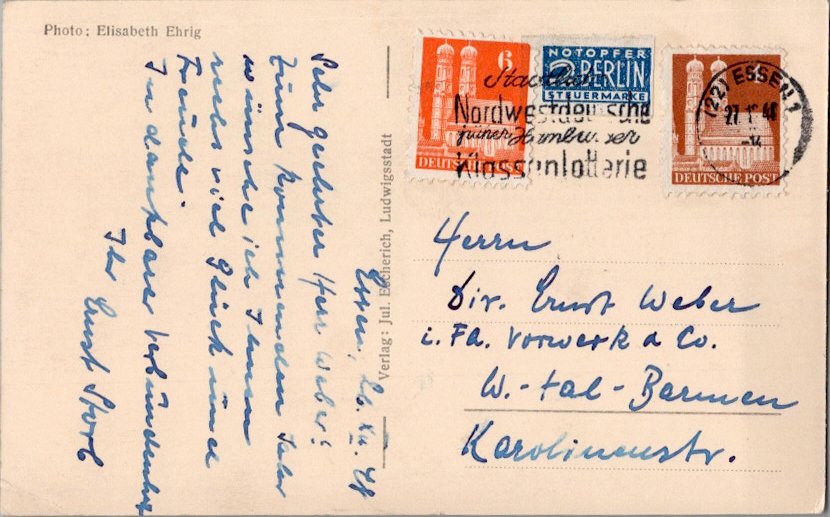 Photo: Elisabeth Ehrig
Essen, 26.XII.48
Sehr geehrter Herr Weber!
Zum kommenden Jahr
wünsche ich Ihnen
recht viel Glück und
Freude.
In dankbarer Verbundenheit
Ihr Ernst
Verlag: Jul. Escherich, Ludwigsstadt
6
DEUTSCHE POST
NOTOPFER
2 BERLIN
STEUERMARKE
DEUTSCHE POST
(22) ESSEN 1
27.1 48
Nordwestdeutsche
Klassenlotterie
Herrn
Dir. Ernst Weber
i. Fa. Vorwerk & Co.
W.-tal-Barmen
Karolinenstr.